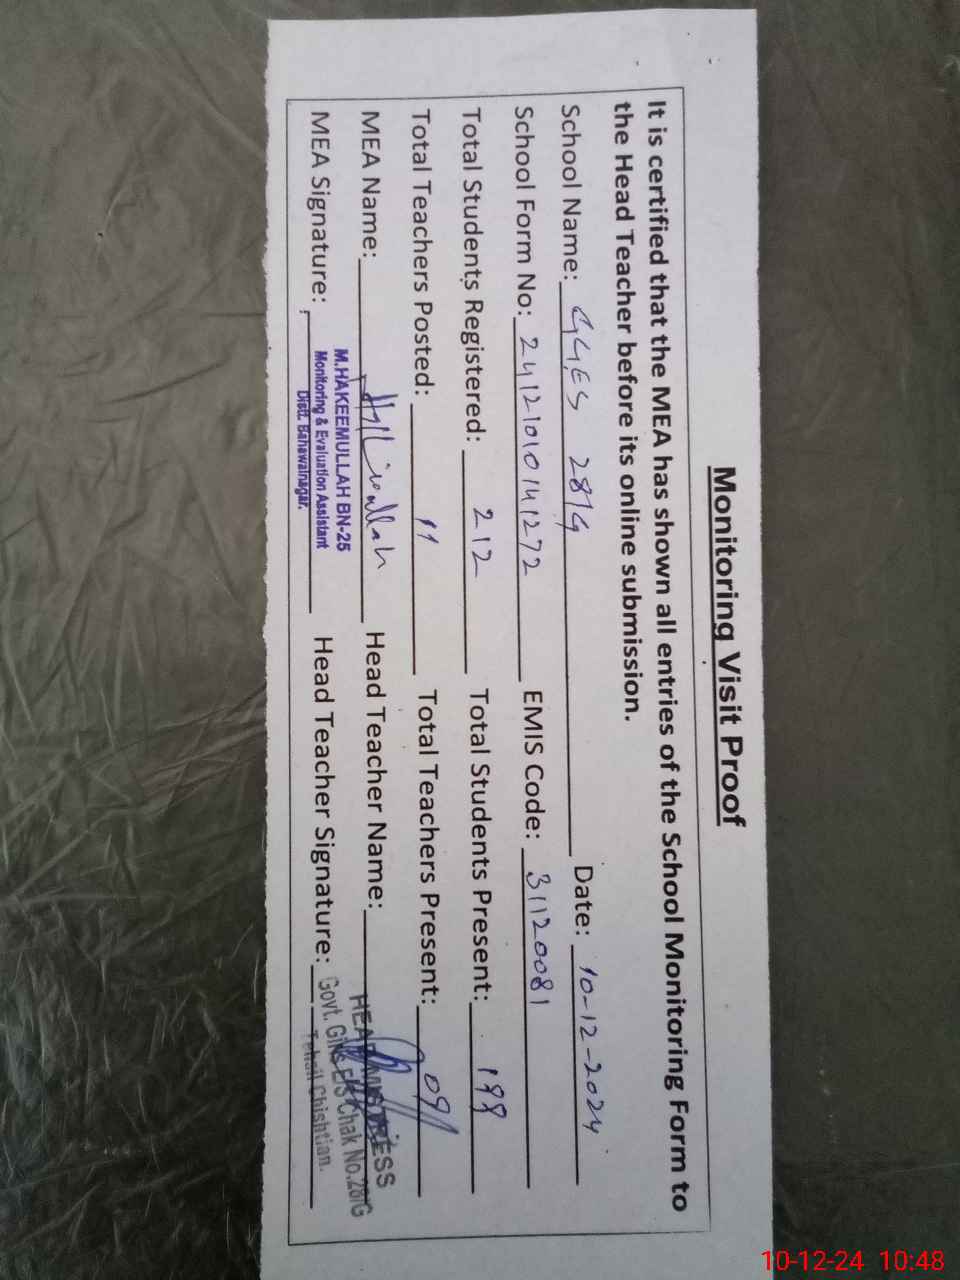 Monitoring Visit Proof
It is certified that the MEA has shown all entries of the School Monitoring Form to
the Head Teacher before its online submission.
School Name: GGES 28/G Date: 10-12-2024
School Form No: 241210101141272 EMIS Code: 31120081
Total Students Registered: 212 Total Students Present: 199
Total Teachers Posted: 11 Total Teachers Present: 09
MEA Name: Head Teacher Name:
HEADMISTRESS
MEA Signature: Head Teacher Signature:
M.HAKEEMULLAH BN-25
Monitoring & Evaluation Assistant
Distt. Bahawalnagar.
Govt. Girls E/S Chak No.28/G
Tehsil Chishtian.
10-12-24 10:48